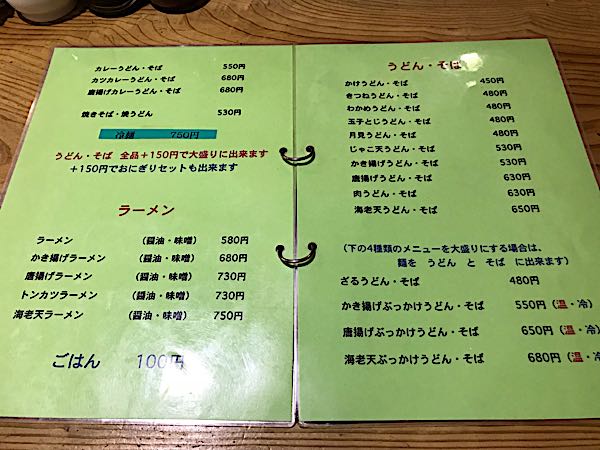 カレーうどん・そば 550円
カツカレーうどん・そば 680円
唐揚げカレーうどん・そば 680円
焼きそば・焼うどん 530円
冷麺 750円
うどん・そば 全品+150円で大盛りに出来ます
+150円でおにぎりセットも出来ます
ラーメン
ラーメン (醤油・味噌) 580円
かき揚げラーメン (醤油・味噌) 680円
唐揚げラーメン (醤油・味噌) 730円
トンカツラーメン (醤油・味噌) 730円
海老天ラーメン (醤油・味噌) 750円
ごはん 100円
うどん・そば
かけうどん・そば 450円
きつねうどん・そば 480円
わかめうどん・そば 480円
玉子とじうどん・そば 480円
月見うどん・そば 480円
じゃこ天うどん・そば 530円
かき揚げうどん・そば 530円
唐揚げうどん・そば 630円
肉うどん・そば 630円
海老天うどん・そば 650円
(下の4種類のメニューを大盛りにする場合は、
麺を うどん と そば に出来ます)
ざるうどん・そば 480円
かき揚げぶっかけうどん・そば 550円(温・冷)
唐揚げぶっかけうどん・そば 650円(温・冷)
海老天ぶっかけうどん・そば 680円(温・冷)